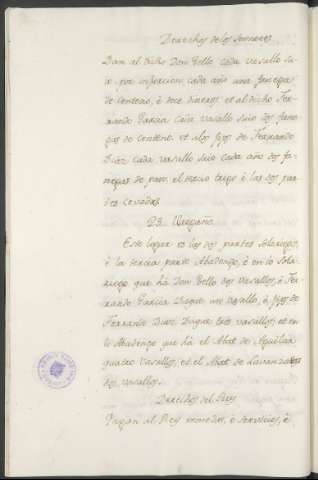 Derechos de los Sennores
Dan al dicho Don Tello cada vasallo su-
por infurcion cada año una fanega
de centeno, è doce dineros. et al dicho Fer-
rando Garcia cada vasallo suio dos fane-
gas de centen. et alos fijos de Ferrando
Diaz cada vasallo suio cada año dos fa-
negas de pan. el tercio trigo è las dos par-
tes cevada.
23.
Este logar es las dos partes solariego,
è la tercia parte Abadengo, è en lo Sola-
riego que há Don Tello dos vasallos, è Fer-
rando Garcia Duque un vasallo, è fijos de
Ferrando Diaz Duque tres vasallos, et en
lo Abadengo que há el Abat de Aguilar
quatro vasallos, et el Abat de
dos vasallos.
Derechos del Rey
Pagan al Rey monedas, è servicios, è